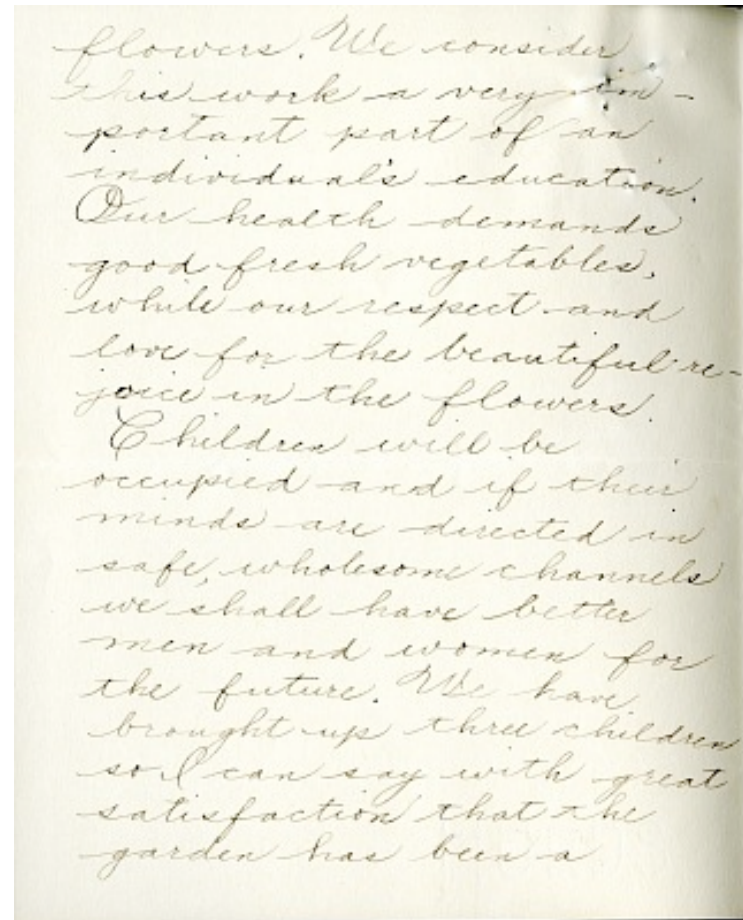 flowers. We consider
this work a very im-
portant part of an
individual's education.
Our health demands
good fresh vegetables,
while our respect and
love for the beautiful re-
joice in the flowers.
Children will be
occupied and if their
minds are directed in
safe, wholesome channels
we shall have better
men and women for
the future. We have
brought up three children
so I can say with great
satisfaction that the
garden has been a